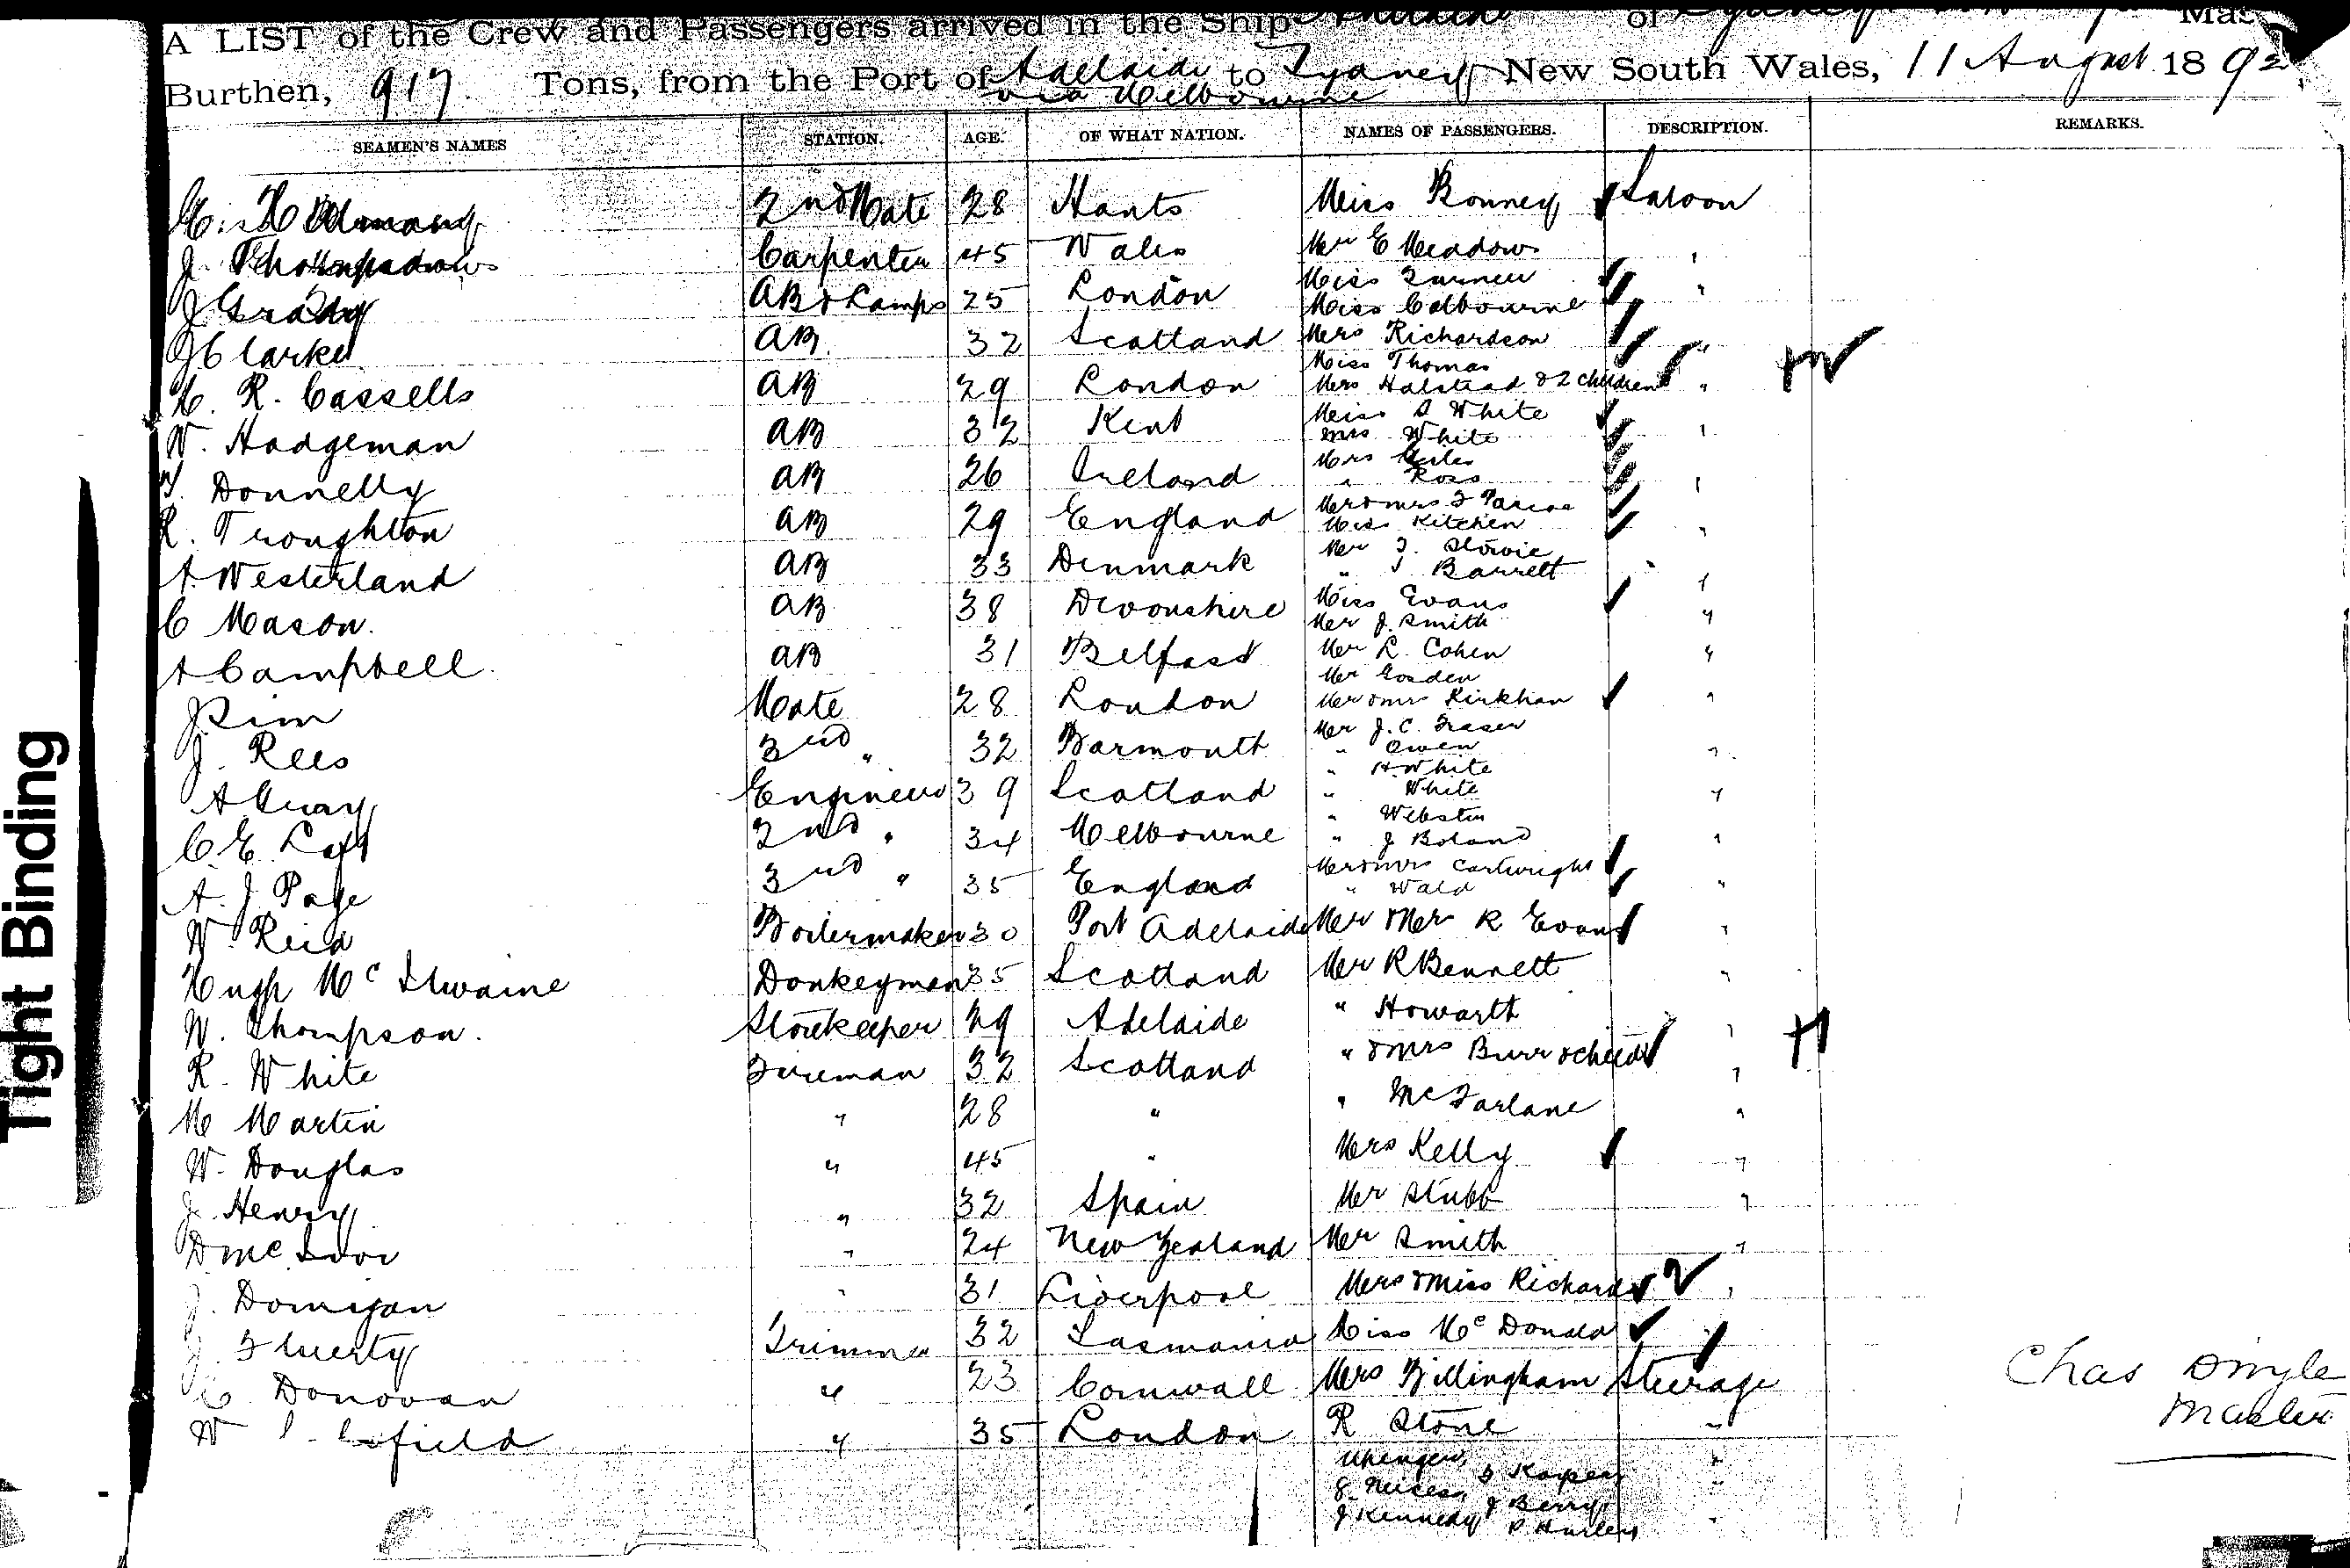 A LIST of the Crew and Passengers arrived in the Ship of Sydney Mas
Burthen, 917 Tons, from the Port of Adelaide to Sydney New South Wales, 11 August 1892
via Melbourne
SEAMEN'S NAMES STATION. AGE. OF WHAT NATION. NAMES OF PASSENGERS. DESCRIPTION. REMARKS.
2nd Mate 28 Hants Miss Bonney Saloon
J. Carpenter 45 Wales Mr E Meadows "
J Grady AB & Lamps 25 London Miss Turner "
Miss Colbourne
J Clarke AB 32 Scotland Mrs Richardson "
Miss Thomas
H. R. Cassells AB 29 London Mrs Halstead & 2 children "
W. Hodgeman AB 32 Kent Miss S White "
Mrs White
Donnelly AB 26 Ireland Mrs "
" Ross
R. Troughton AB 29 England Mr & Mrs "
Miss Kitchen
A Westerland AB 33 Denmark Mr
" J Barrett "
C Mason. AB 38 Devonshire Miss Evans "
Mr J. Smith
A Campbell AB 31 Belfast Mr L. Cohen "
Mr Gosden
J Sim Mate 28 London Mr & Mrs Kirkham "
J. Rees 3rd " 32 Barmouth Mr J. C. Fraser "
" Owen
" H White
A Engineer 39 Scotland " White "
" Webster
C. E. 2nd " 34 Melbourne " J Boland "
Mr & Mrs Cartwright
A. J. Page 3rd " 35 England " Wald "
W Reid Boilermaker 30 Port Adelaide Mr & Mr R Evans "
Hugh McIlwaine Donkeyman 35 Scotland Mr R Bennett "
W. Thompson. Storekeeper 29 Adelaide " Howarth "
R. White Fireman 32 Scotland " & Mrs Burr & child "
M Martin " 28 " " McFarlane "
W. Douglas " 45 " Mrs Kelly "
J. Henry " 32 Spain Mr Stubb "
D McIvor " 24 New Zealand Mr Smith "
J. Donigan " 31 Liverpool Mrs & Miss Richards "
J. Trimmer 32 Tasmania Miss McDonald
C. Donovan " 23 Cornwall Mrs Billingham Steerage
W " 35 London R Stone "
J Berry
J Kennedy P Hurley
Chas Dingle
Master
Tight Binding